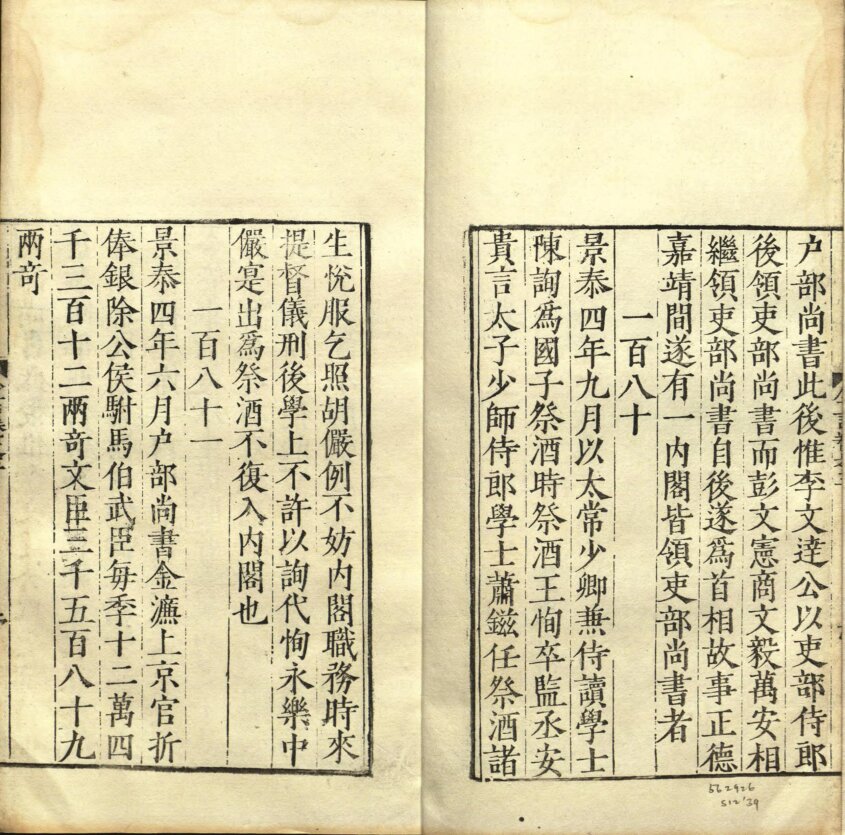 户部尚書此後惟李文達公以吏部侍郎
後領吏部尚書而彭文憲商文毅萬安相
繼領吏部尚書自後遂為首相故事正德
嘉靖間遂有一内閣皆領吏部尚書者
一百八十
景泰四年九月以太常少卿兼侍讀學士
陳詢為國子祭酒時祭酒王恂卒監丞安
貴言太子少師侍郎學士蕭鎡任祭酒諸
生悅服乞照胡儼例不妨内閣職務時來
提督儀刑後學上不許以詢代恂永樂中
儼寔出為祭酒不復入内閣也
一百八十一
景泰四年六月户部尚書金濂上京官折
俸銀除公侯駙馬伯武臣每季十二萬四
千三百十二兩竒文臣三千五百八十九
兩竒
562926
512'39